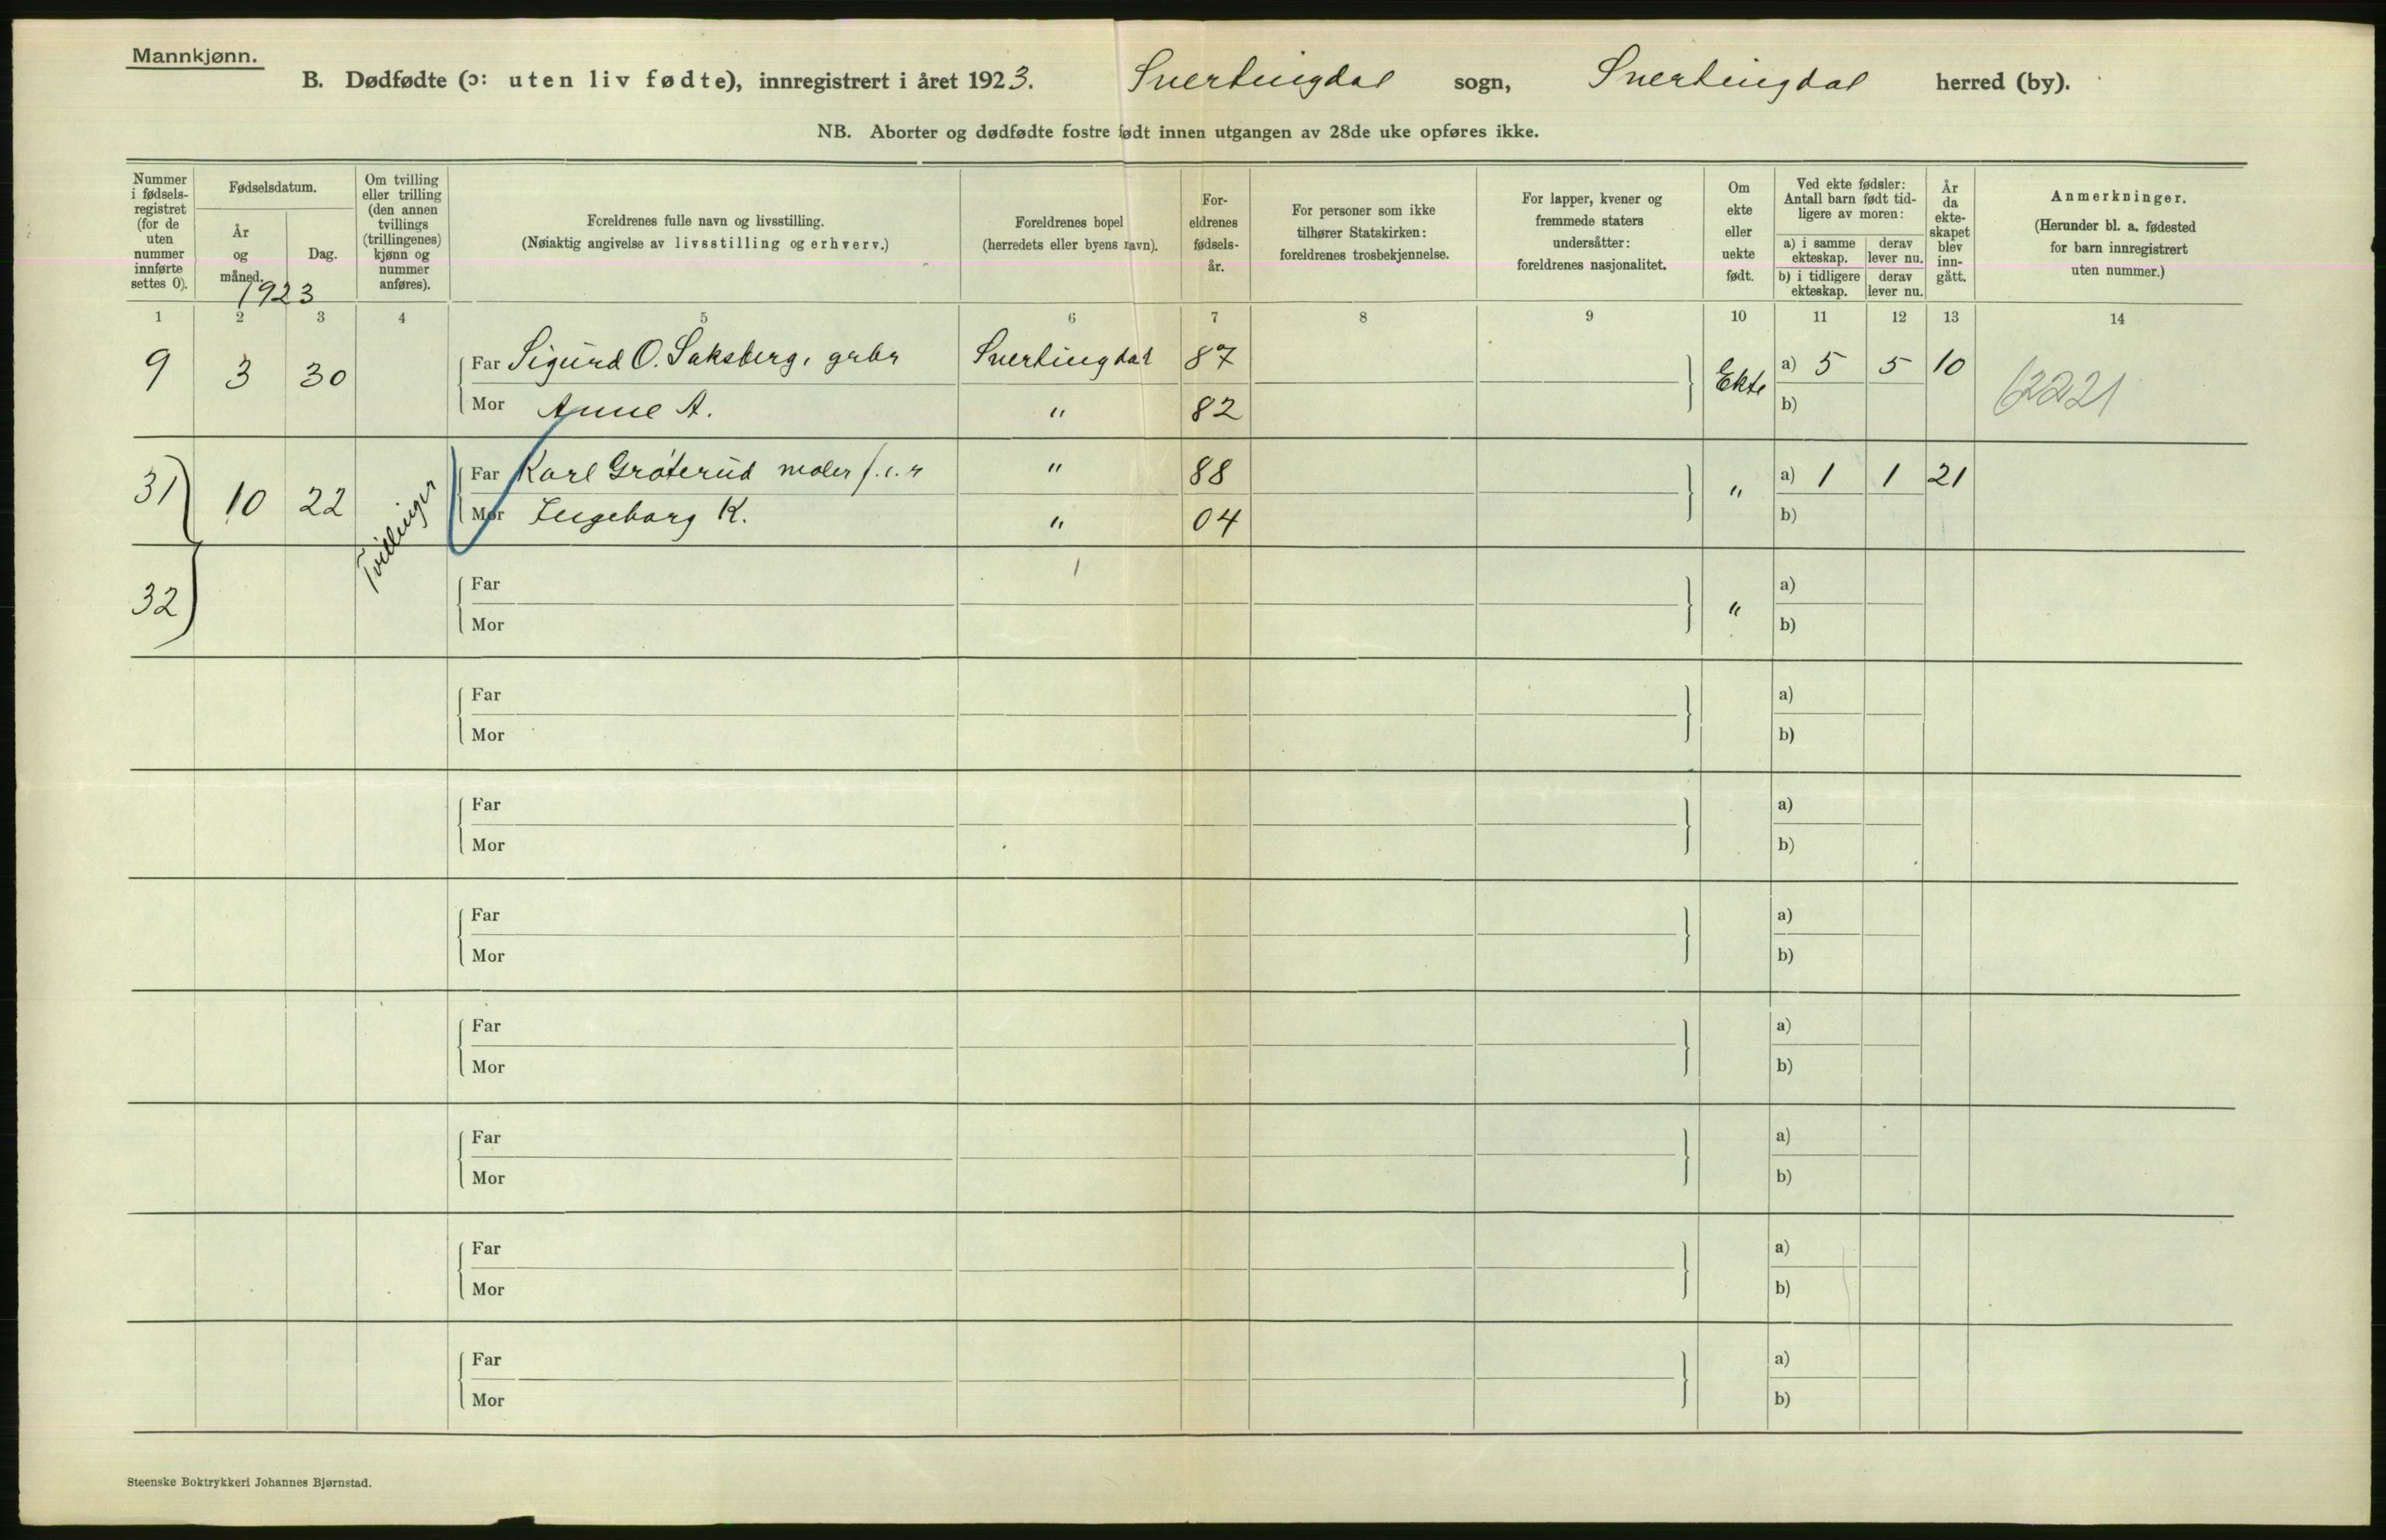 Mannkjønn.
B. Dødfødte (ɔ: uten liv fødte), innregistrert i året 1923. Snertingdal sogn, Snertingdal herred (by).
NB. Aborter og dødfødte fostre født innen utgangen av 28de uke opføres ikke.
Nummer i fødsels-registret (for de uten nummer innførte settes 0).
Fødselsdatum.
År og måned.
Dag.
1923
Om tvilling eller trilling (den annen tvillings (trillingenes) kjønn og nummer anføres).
Foreldrenes fulle navn og livsstilling.
(Nøiaktig angivelse av livsstilling og erhverv.)
Foreldrenes bopel
(herredets eller byens navn).
For-eldrenes fødsels-år.
For personer som ikke tilhører Statskirken: foreldrenes trosbekjennelse.
For lapper, kvener og fremmede staters undersåtter: foreldrenes nasjonalitet.
Om ekte eller uekte født.
Ved ekte fødsler: Antall barn født tid-ligere av moren:
a) i samme ekteskap.
derav lever nu.
b) i tidligere ekteskap.
derav lever nu.
År da ekte-skapet blev inn-gått.
Anmerkninger.
(Herunder bl. a. fødested for barn innregistrert uten nummer.)
1 2 3 4 5 6 7 8 9 10 11 12 13 14
9 3 30 Far Sigurd O. Saksberg, grbr Snertingdal 87 Ekte a) 5 5 10
Mor Anne A. " 82 b)
31 10 22 Tvillinger Far Karl Gråterud maler " 88 " a) 1 1 21
Mor Ingeborg K. " 04 b)
32 Far " a)
Mor b)
Far a)
Mor b)
Far a)
Mor b)
Far a)
Mor b)
Far a)
Mor b)
Far a)
Mor b)
Far a)
Mor b)
Far a)
Mor b)
Steenske Boktrykkeri Johannes Bjørnstad.